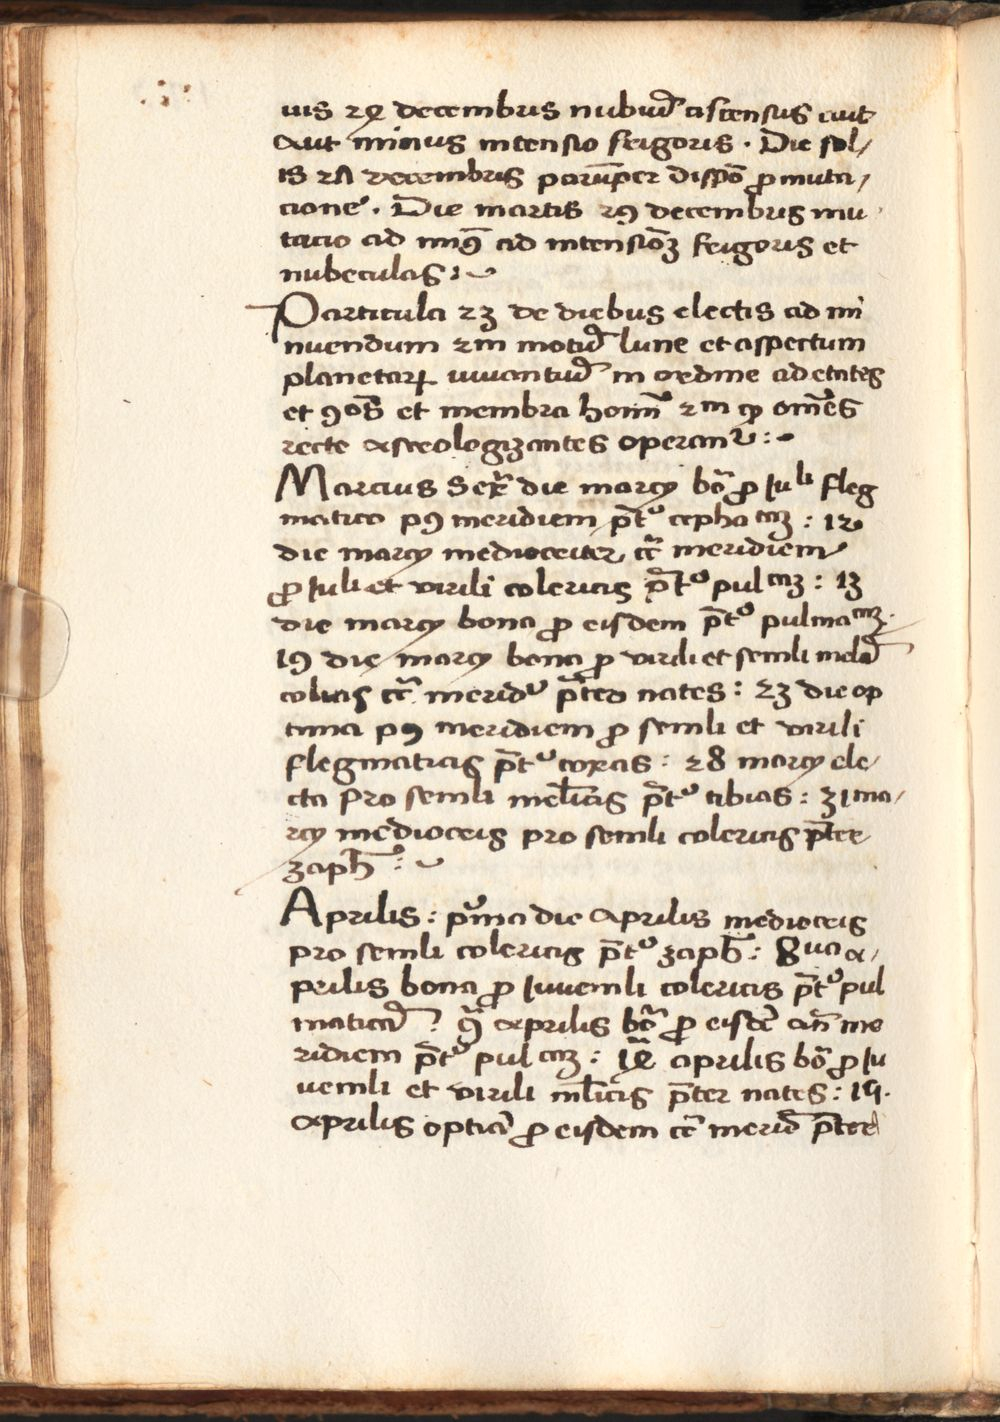 uis 24 decembris nubiu̅ ascensus erit
aut minus intensio frigoris · Die sol/
is 27 decembris paru̅per dispo̅ p̱ muta/
cione · Die martis 29 decembris mu
tacio ad min9 ad intensio̅ꝫ frigoris et
nubeculas :
Particula 23 de diebus electis ad mi
nuendum 2m motu̅ lune et aspectum
planetarꝝ iuvantiu̅ in ordine ad etates
et 9o̅s et membra homi̅ 2m ꝙ om̅es
recte astrologizantes operant :
Marcius die marcy bo̅ ꝓ Iuli fleg
matico p9 meridiem p̅t cepha cuꝫ : 12
die marcy mediocriter meridiem
ꝓ Iuli et virili colericis p̅t pul cuꝫ : 13
die marcy bona ꝓ eisdem p̅t pulma cuꝫ
19 die marcy bona ꝓ virili et senili mela̅
colicis meridi p̅ter nates : 23 die op
tima p9 meridiem ꝓ senili et virili
flegmaticis p̅t coxas : 28 marcy ele/
cta pro senili mel̅icis p̅t tibias : 31 ma/
rcy mediocris pro senili colericis p̅ter
zaph̅ :
Aprilis : prima die Aprilis mediocris
pro senili colericis p̅t zaph̅ : 8ua a/
prilis bona ꝓ Iuvenili colericis p̅t pul
matica̅ 9a aprilis bo̅ ꝓ eisde̅ an̅ me
ridiem p̅t pul cuꝫ : aprilis bo̅ ꝓ Iu
venili et virili ml̅icis p̅ter nates : 15.
aprilis optia̅ ꝓ eisdem meri̅d p̅ter